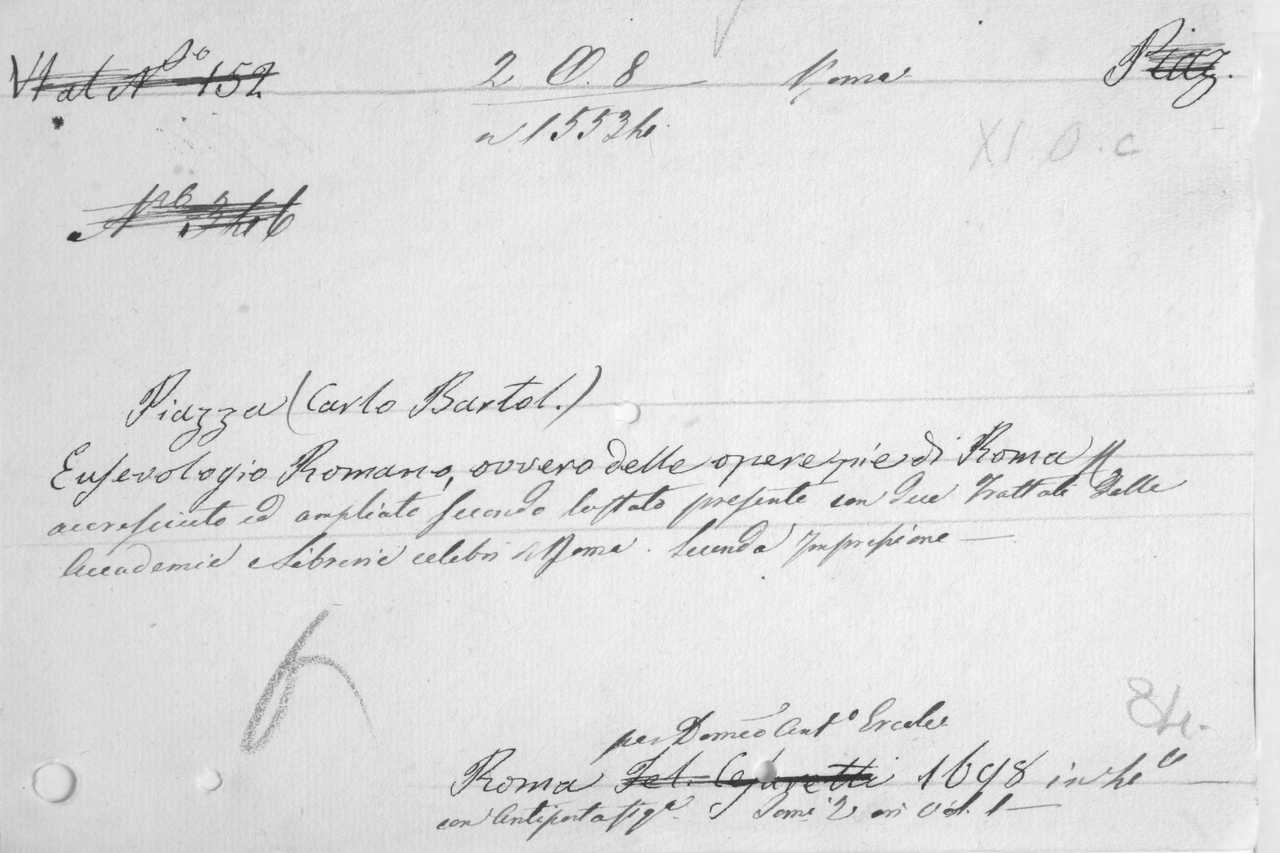 Nº 152 2 O. 8 Roma Piaz.
n 15534
XI. O. c
Nº. 346
Piazza (Carlo Bartol.)
Eusevologio Romano, ovvero delle opere pie di Roma
accresciuto ed ampliato secondo lo stato presente con due Trattati delle
Accademie e Librerie celebri di Roma. Seconda Impressione —
84.
per Domco Antº Ercole
Roma Fel. Cesaretti 1698 in 4º
con Antiporta figª. Tomi 2 in vol. 1 —